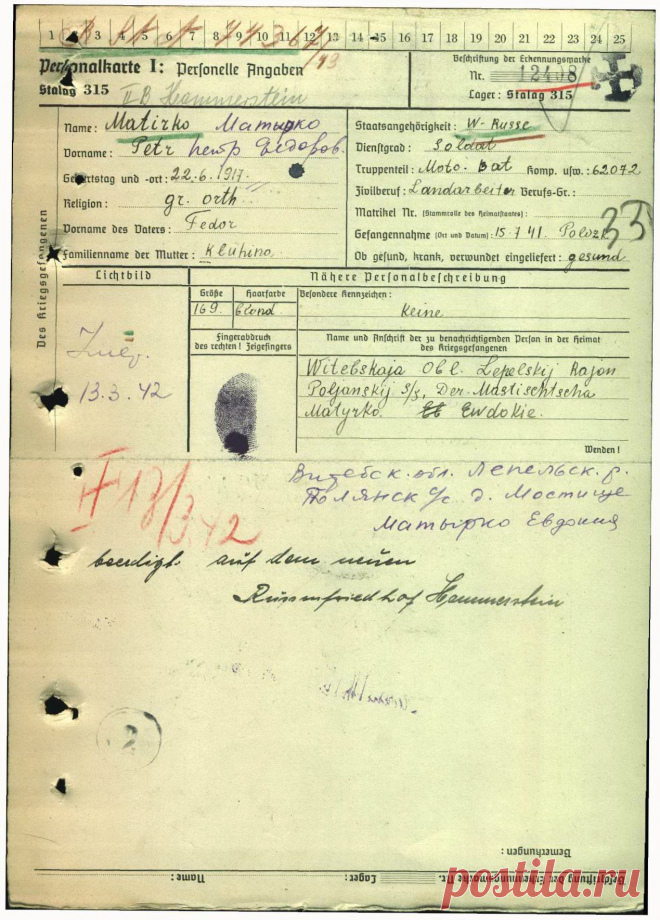 1 2 3 4 5 6 7 8 9 10 11 12 13 14 15 16 17 18 19 20 21 22 23 24 25
Personalkarte I: Personelle Angaben
Beschriftung der Erkennungsmarke
Stalag 315
II B Hammerstein
Nr. 12408
Lager: Stalag 315
Des Kriegsgefangenen
Name: Matirko Матырко
Staatsangehörigkeit: W-Russe
Vorname: Petr Петр Федоров.
Dienstgrad: Soldat
Truppenteil: Moto. Bat Komp. usw.: 62072
Geburtstag und -ort: 22.6.1917.
Zivilberuf: Landarbeiter Berufs-Gr.:
Religion: gr. orth
Matrikel Nr. (Stammrolle des Heimatstaates):
Vorname des Vaters: Fedor
Gefangennahme (Ort und Datum): 15.7.41. Polozk
Familienname der Mutter: Kluhina.
Ob gesund, krank, verwundet eingeliefert: gesund
Lichtbild
Nähere Personalbeschreibung
Größe Haarfarbe Besondere Kennzeichen:
169. blond. Keine
Fingerabdruck
des rechten! Zeigefingers
Name und Anschrift der zu benachrichtigenden Person in der Heimat
des Kriegsgefangenen
Witebskaja Obl. Lepelskij Rajon
Poljanskij S/s, Der. Mastischtscha
Matyrko. Ewdokie.
13.3.42
Wenden!
Витебск. обл. Лепельск. р.
Полянск с/с д. Мостище
Матырко Евдокия
13/3.42
beerdigt auf dem neuen
Russenfriedhof Hammerstein
2
Bemerkungen:
Beschriftung der Erkennungsmarke Nr. Lager: Name:
postila.ru